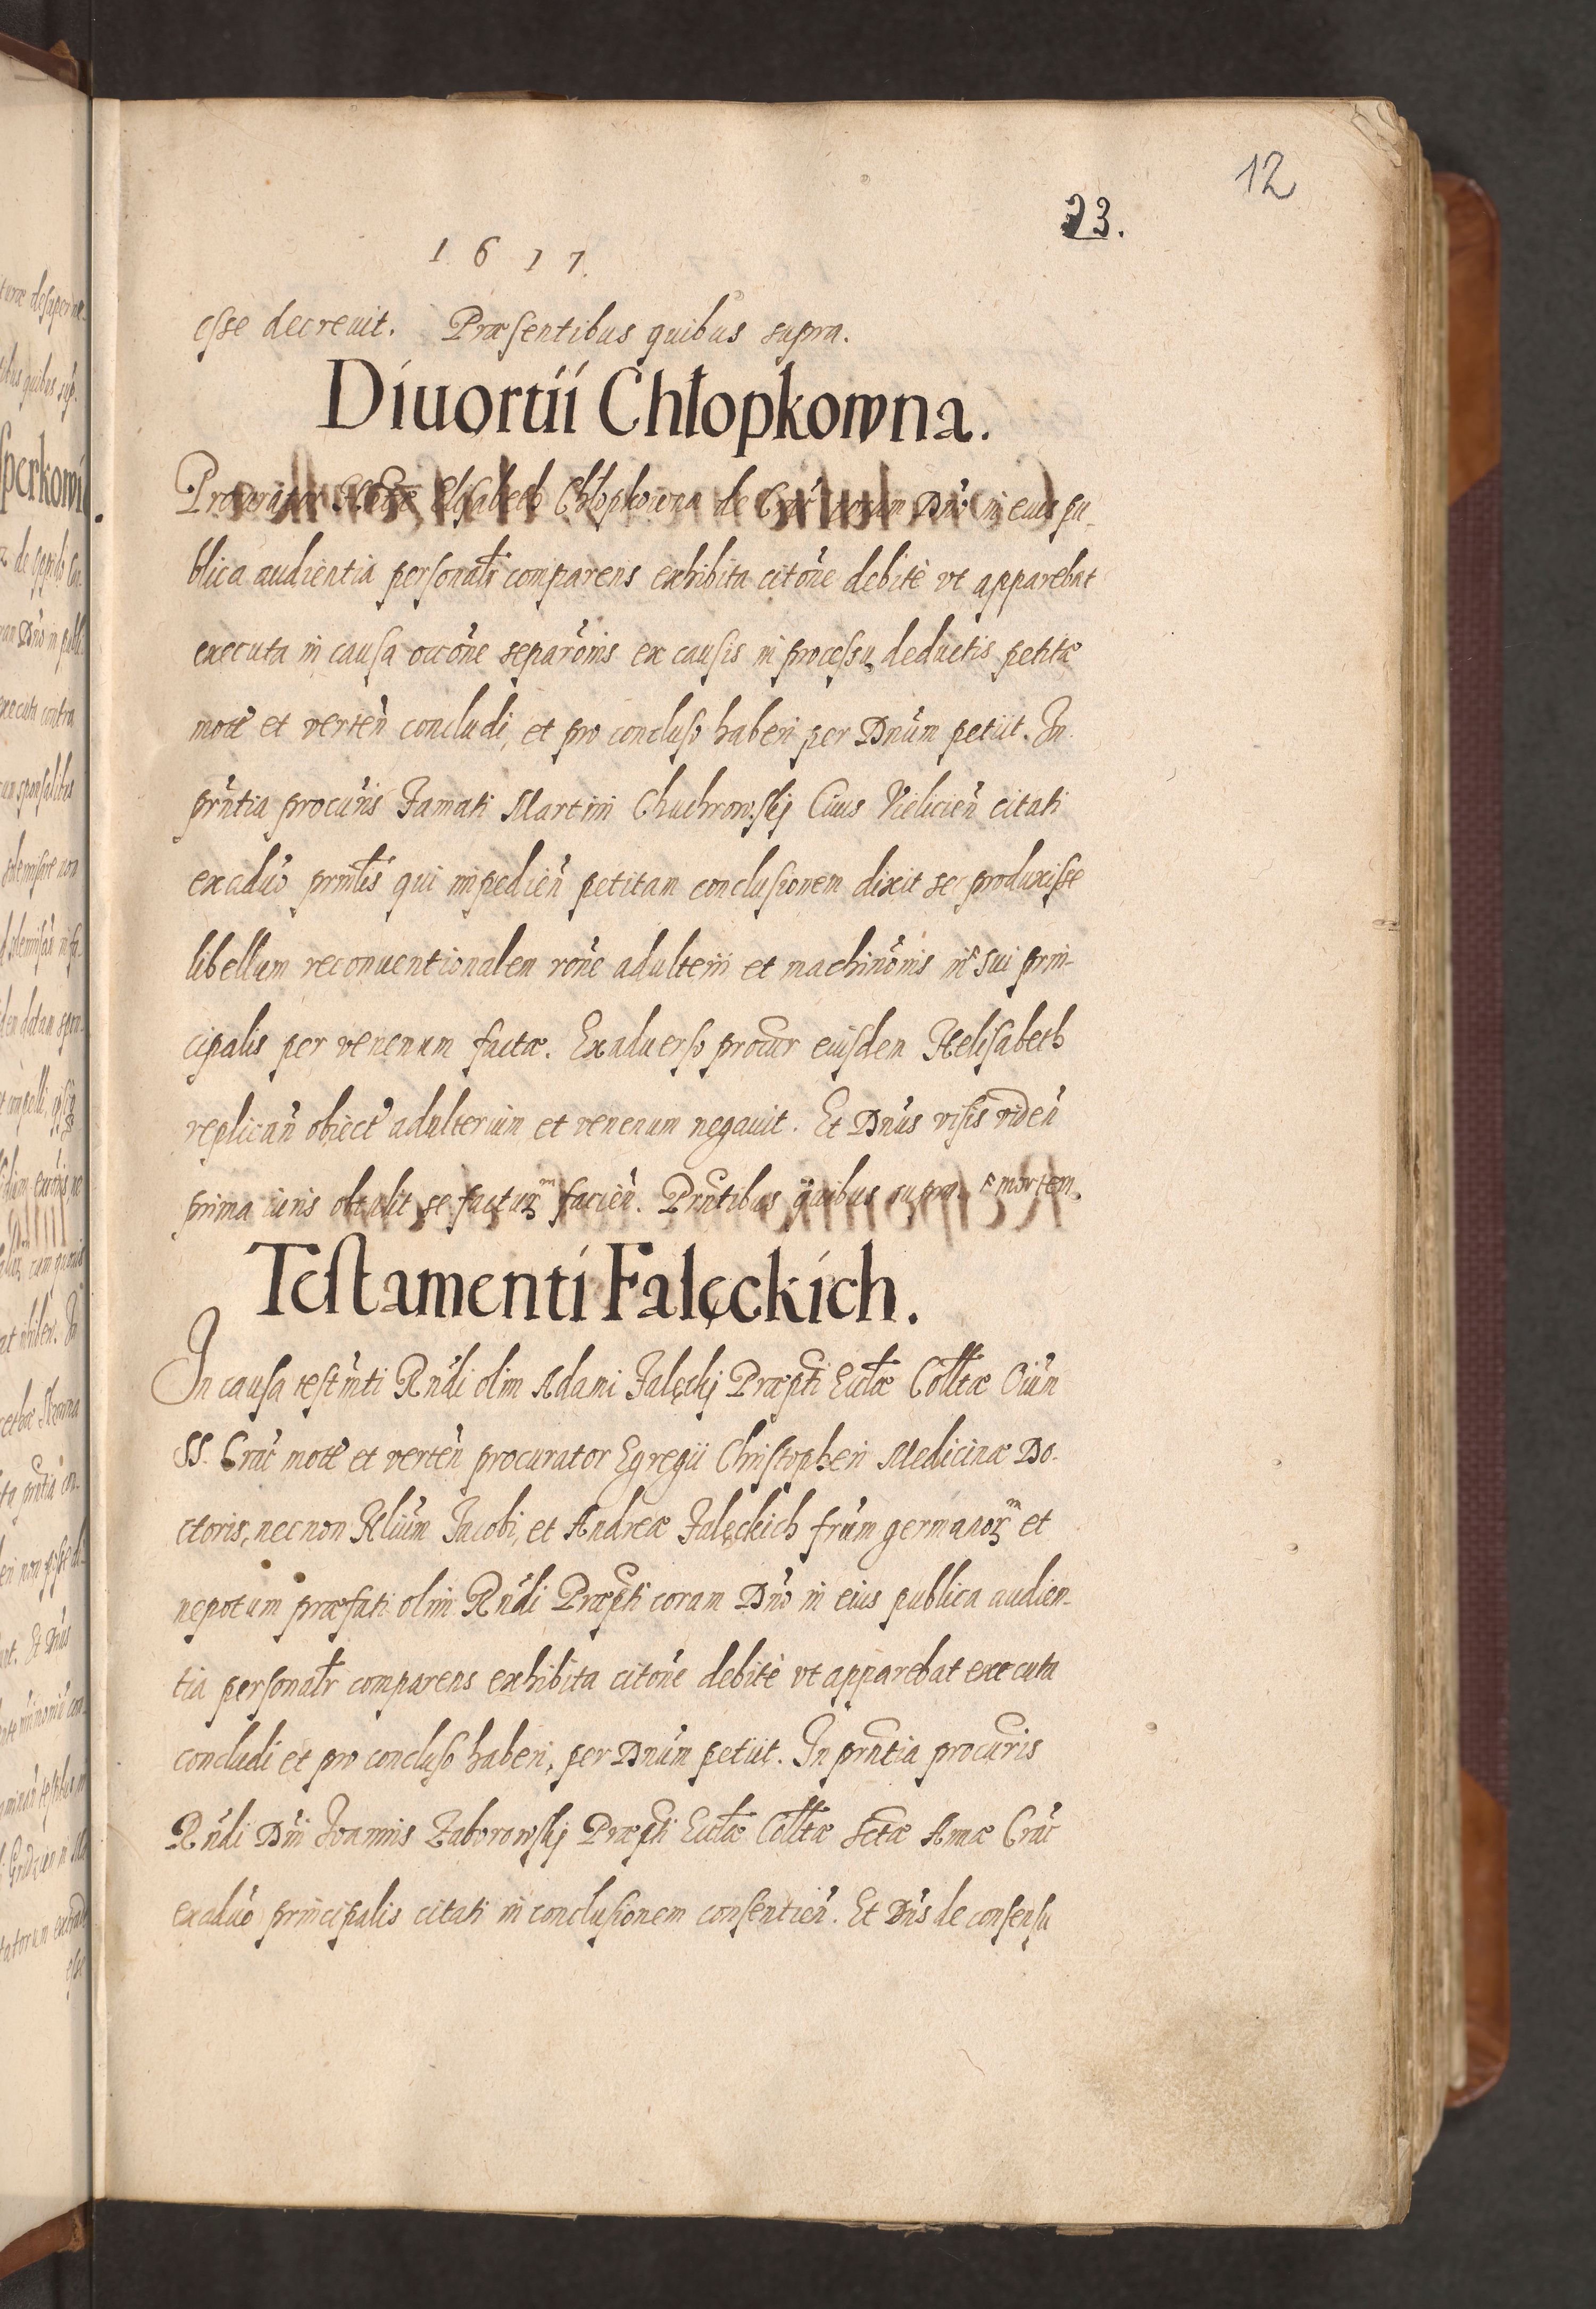 12
23.
1 6 1 7.
esse decreuit. Præsentibus quibus supra.
Diuortii Chłopkowna.
Procurator Helisabeth Chłopkowna de Crac̃ coram Dn̄o in eius pu-
blica audientia personalr̃ comparens exhibita citon̄e debitè vt apparebat
executa in causa occon̄e separōnis ex causis in processu deductis petitæ
motæ et verten̄ concludi, et pro concluso haberi per Dn̄um petiit. In
prn̄tia procuris Famati Martini Chuchrowskij Ciuis Vielicien̄ citati
exaduo prin̄lis qui impedien̄ petitam conclusionem dixit se produxisse
libellum reconuentionalem ron̄e adulterii et machinōnis in sui prin-
cipalis per venenum factæ. Exaduerso procur eiusdem Helisabeth
replican̄ obiect adulterium et venenum negauit. Et Dn̄us visis viden̄
prima iuris obtulit se facturm facien̄. Prn̄tibus quibus supra. mortem.
Testamenti Falęckich.
In causa testm̄ti Rn̄di olim Adami Falęckj Præpti Eccl̃æ Coll̃tæ Oiūm
SS. Crac̃ motæ et verten̄ procurator Egregii Christopheri Medicinæ Do-
ctoris, necnon Jacobi, et Andreæ Falęckich frūm germanorm et
nepotum præfati olim Rn̄di Præpti coram Dn̄o in eius publica audien-
tia personalr̃ comparens exhibita citon̄e debitè vt apparebat executa
concludi et pro concluso haberi, per Dn̄um petiit. In prn̄tia procuris
Rn̄di Dn̄i Joannis Zaborowskj Præpti Eccl̃æ Coll̃tæ Sctæ Annæ Crac̃
exaduo principalis citati in conclusionem consentien̄. Et Dn̄s de consensu